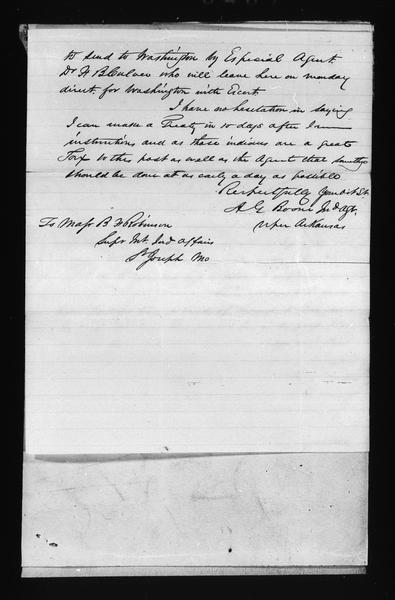 to send to Washington by Especial Agent
Dr F B Culver who will leave here on monday
direct for Washington with Escort
I have no hesitation in saying
I can make a Treaty in 10 days after I
instructions and as those indians are a great
Tax to this post as well as the Agent that
should be done at as early a day as posible
Respectfully Your obt St.
A G Boone Ind Agt.
upper Arkansas
To Majr B Robinson
Supr Int Ind Affairs
St Joseph Mo